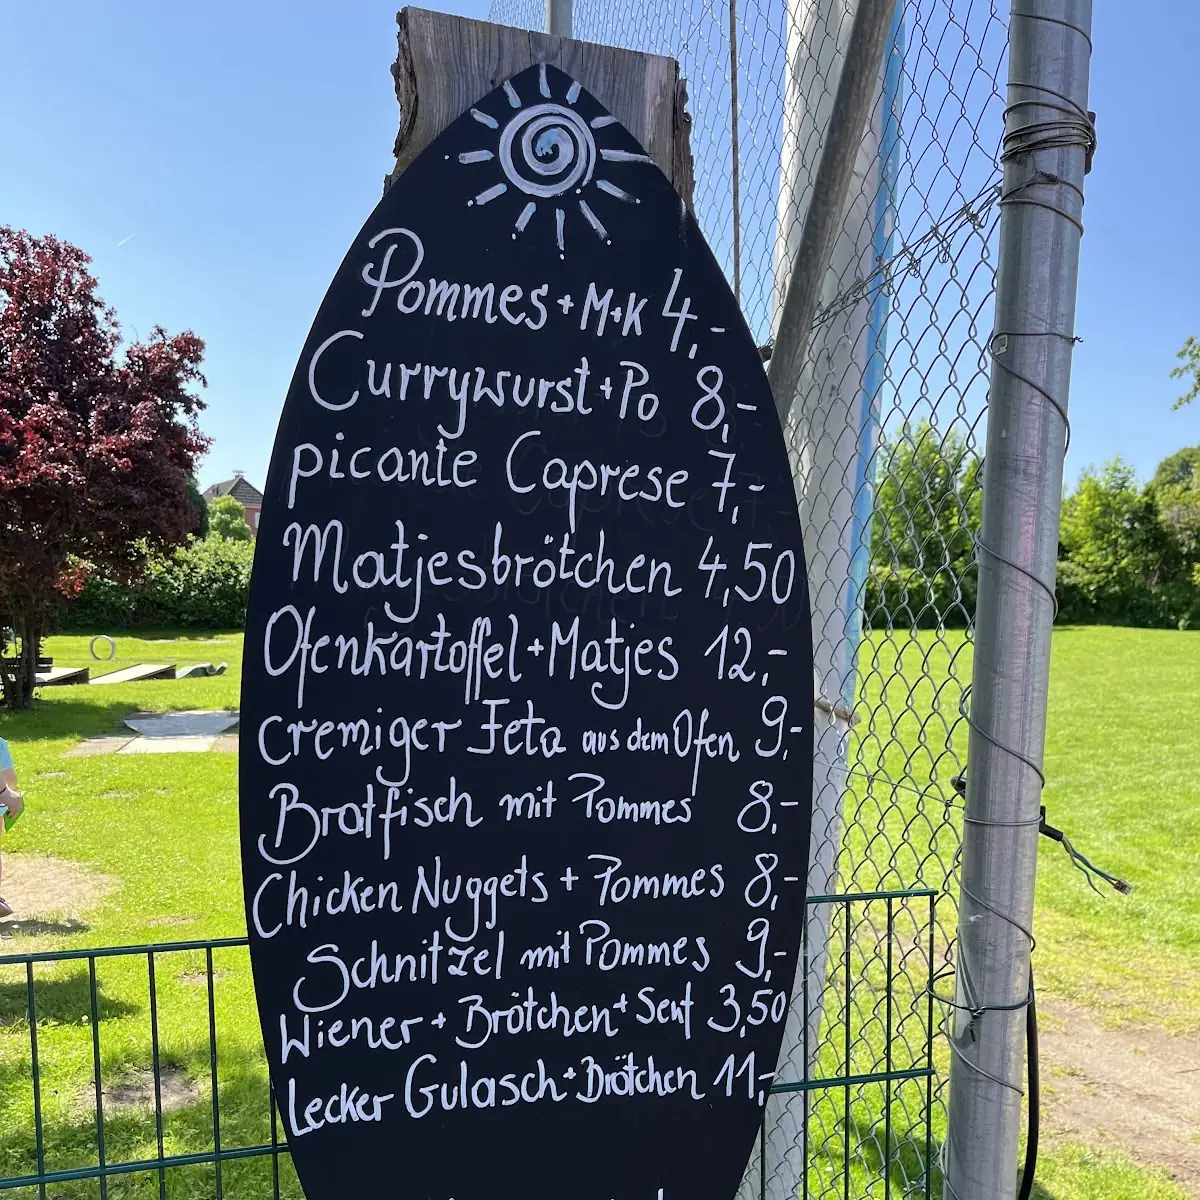 Pommes + M+K 4,-
Currywurst + Po 8,-
picante Caprese 7,-
Matjesbrötchen 4,50
Ofenkartoffel + Matjes 12,-
cremiger Feta aus dem Ofen 9,-
Bratfisch mit Pommes 8,-
Chicken Nuggets + Pommes 8,-
Schnitzel mit Pommes 9,-
Wiener + Brötchen + Senf 3,50
Lecker Gulasch + Brötchen 11,-